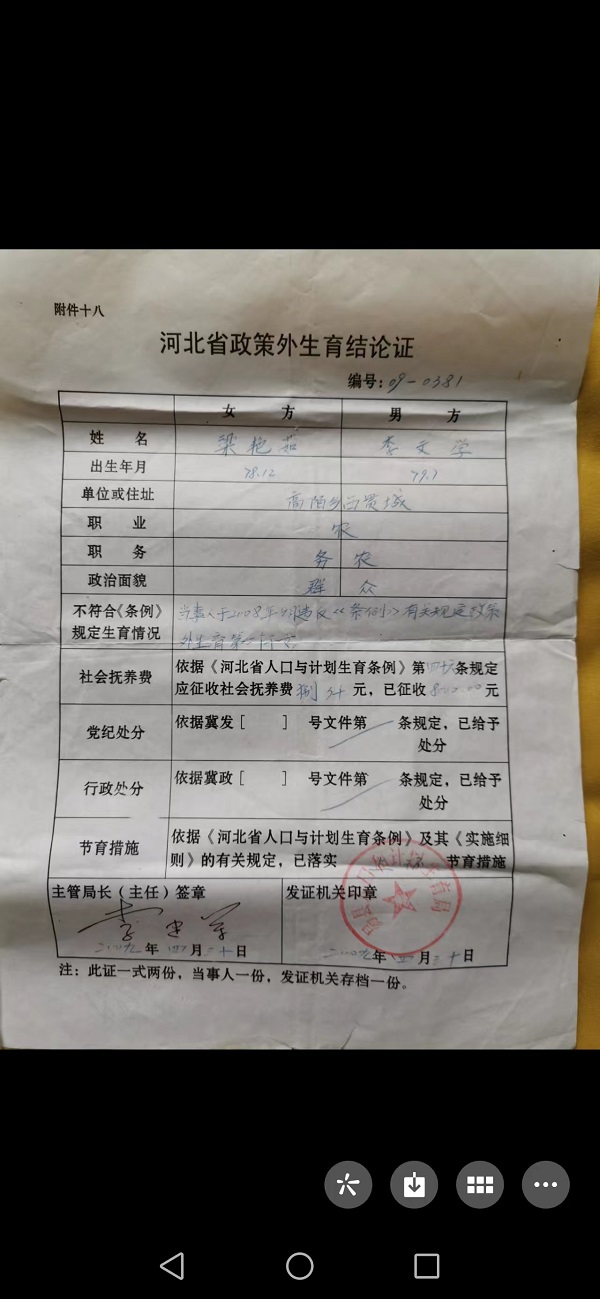 附件十八
河北省政策外生育结论证
编号:09-0381
女 方 男 方
姓 名 梁艳茹 李文学
出生年月 78.12 79.7
单位或住址 高陌乡 城
职 业 农
职 务 务 农
政治面貌 群 众
不符合《条例》 当事人于2008年 违反《条例》有关规定政策
规定生育情况 外生育第一
社会抚养费 依据《河北省人口与计划生育条例》第 条规定
应征收社会抚养费捌仟元,已征收 元
党纪处分 依据冀发[ ]号文件第 条规定,已给予
处分
行政处分 依据冀政[ ]号文件第 条规定,已给予
处分
节育措施 依据《河北省人口与计划生育条例》及其《实施细
则》的有关规定,已落实 节育措施
主管局长(主任)签章 发证机关印章
二〇〇九年四月二十日 二〇〇九年四月二十日
注:此证一式两份,当事人一份,发证机关存档一份。